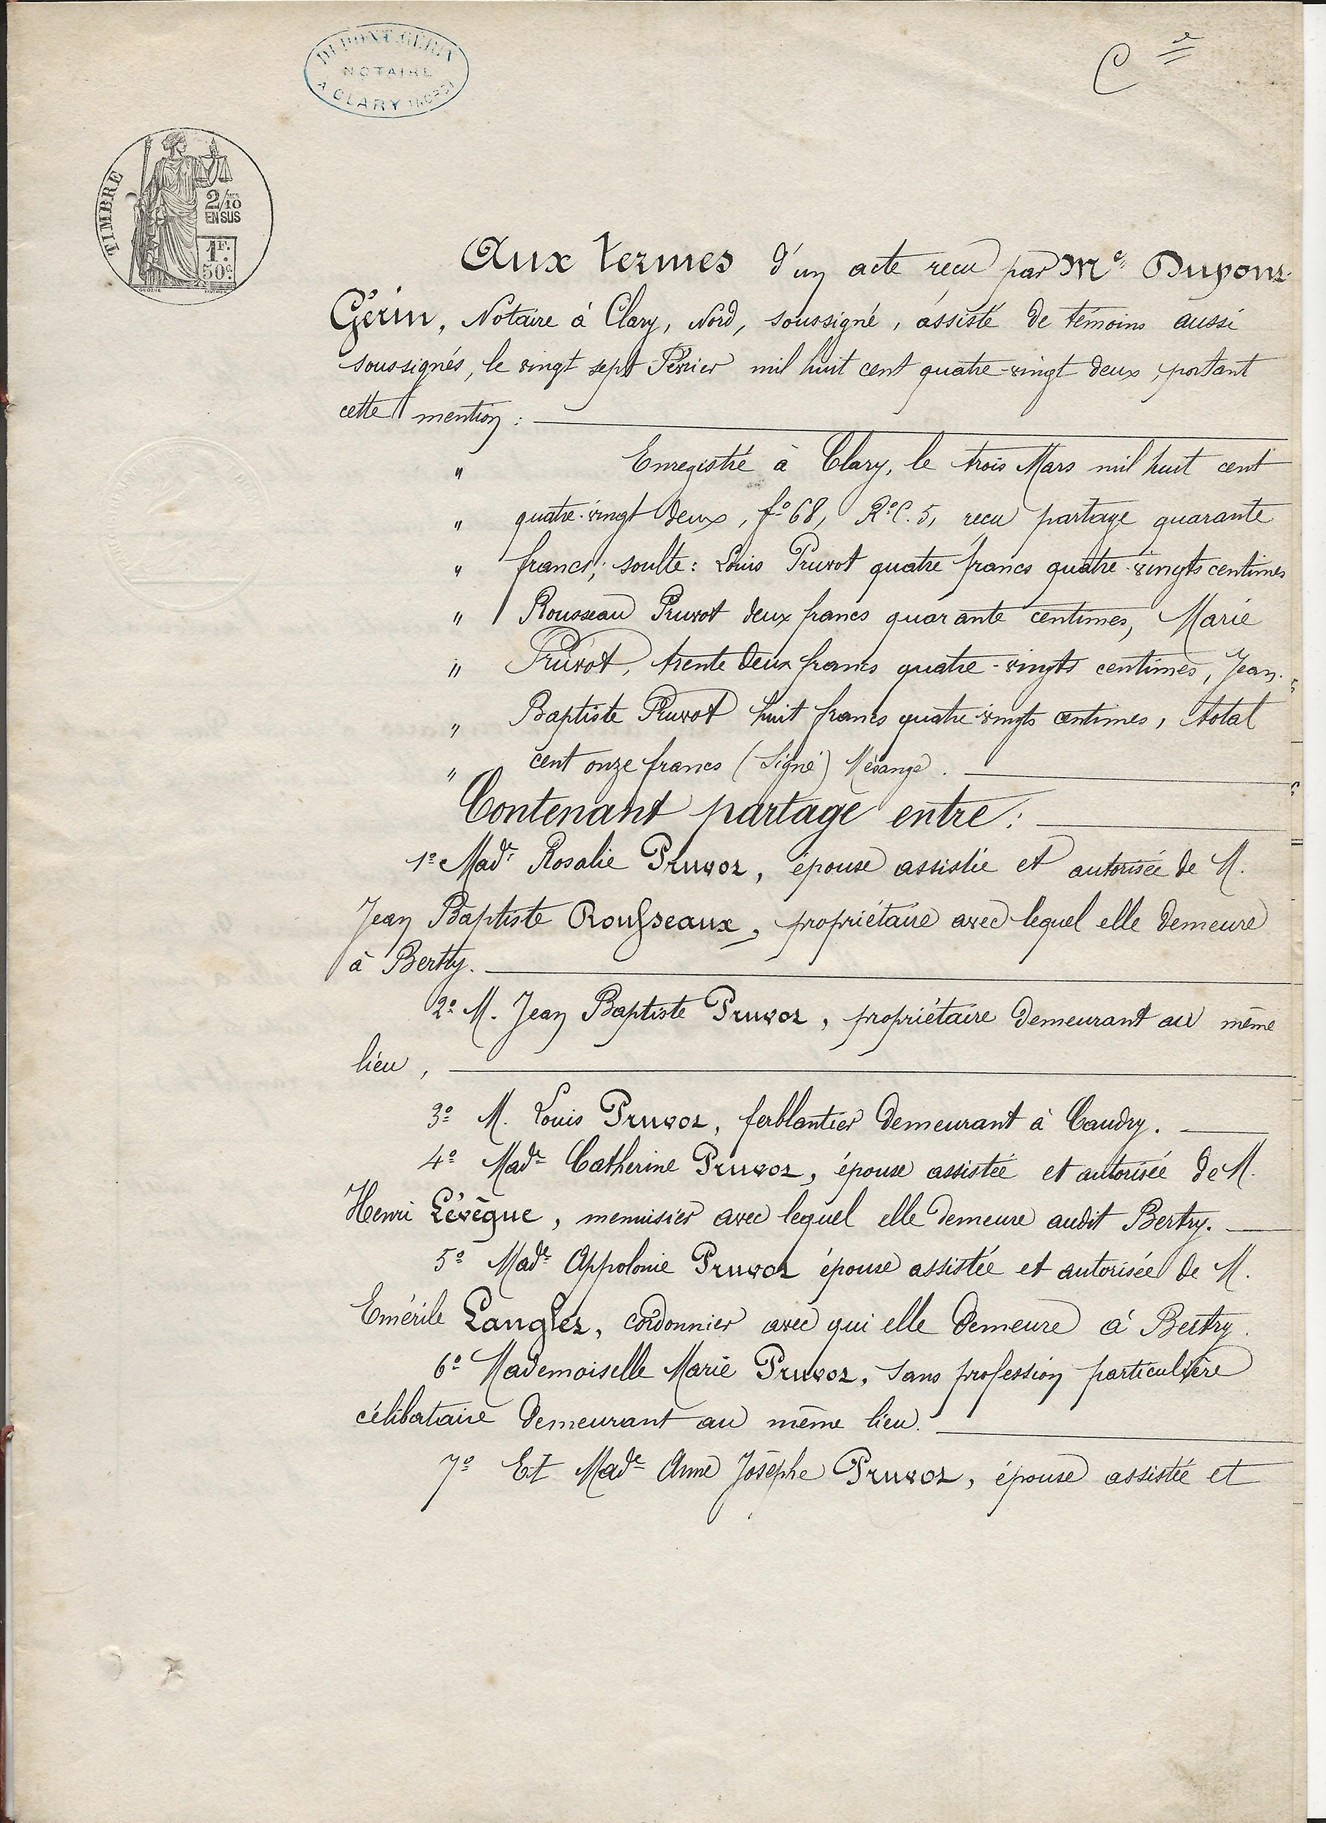 DUPONT-GÉRIN
NOTAIRE
A CLARY (NORD)
TIMBRE
2/10
EN SUS
1F.
50c.
Aux termes d'un acte recu par Me Dupont-
Gérin, Notaire à Clary, Nord, soussigné, assisté de témoins aussi
soussignés, le vingt sept Février mil huit cent quatre-vingt deux, portant
cette mention :
" Enregistré à Clary, le trois Mars mil huit cent
" quatre-vingt deux, fo 68, Ro C. 5, recu partage quarante
" francs; soulte : Louis Pruvot quatre francs quatre-vingts centimes
" Rousseau Pruvot deux francs quarante centimes, Marie
" Pruvot, trente deux francs quatre-vingts centimes, Jean-
" Baptiste Pruvot huit francs quatre vingts centimes, total
" cent onze francs (Signé)
Contenant partage entre :
1o Made Rosalie Pruvot, épouse assistée et autorisée de M.
Jean Baptiste Rousseaux, propriétaire avec lequel elle demeure
à Bertry.
2o M. Jean Baptiste Pruvot, propriétaire demeurant au même
lieu,
3o M. Louis Pruvot, ferblantier demeurant à Caudry.
4o Made Catherine Pruvot, épouse assistée et autorisée de M.
Henri Lévêque, menuisier avec lequel elle demeure audit Bertry.
5o Made Appolonie Pruvot épouse assistée et autorisée de M.
Emérile Langlez, cordonnier avec qui elle demeure à Bertry.
6o Mademoiselle Marie Pruvot, sans profession particulière
célibataire demeurant au même lieu.
7o Et Made Anne Josèphe Pruvot, épouse assistée et